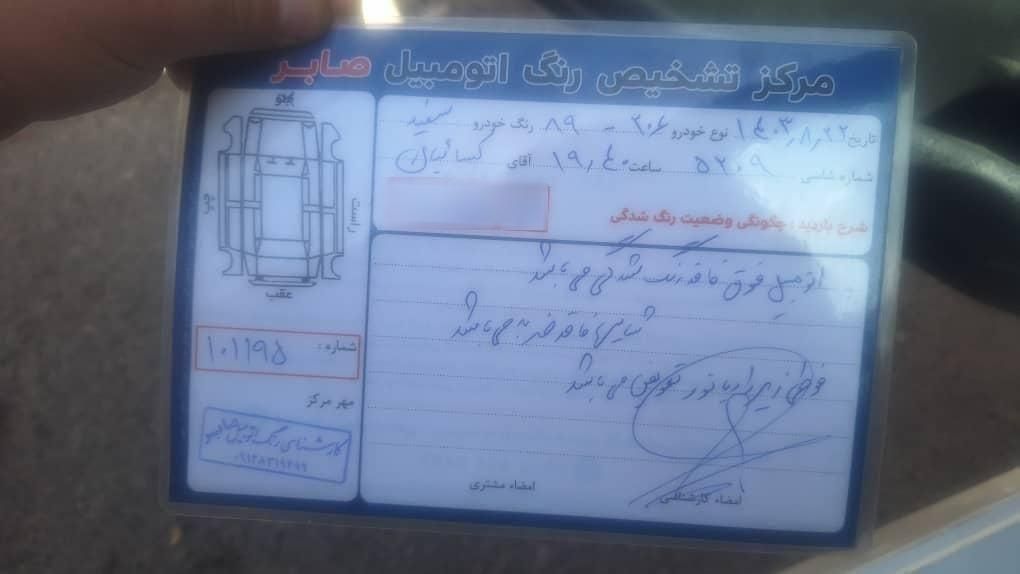 مرکز تشخیص رنگ اتومبیل صابر
تاریخ ۱۴۰۳٫۸٫۲۲ نوع خودرو ۲۰۶ - ۸۹ رنگ خودرو سفید
شماره شاسی ۵۲۰۹ ساعت ۱۹٫۴۰ آقای
شرح بازدید : چگونگی وضعیت رنگ شدگی
اتومبیل فوق فاقد رنگ شدگی می باشد
شاسیها فاقد ضربه می باشد
فقط زیر رادیاتور تعویض می باشد
امضاء کارشناس
امضاء مشتری
جلو
چپ
راست
عقب
شماره :
۱۰۱۱۹۵
مهر مرکز
کارشناسی رنگ اتومبیل صابر